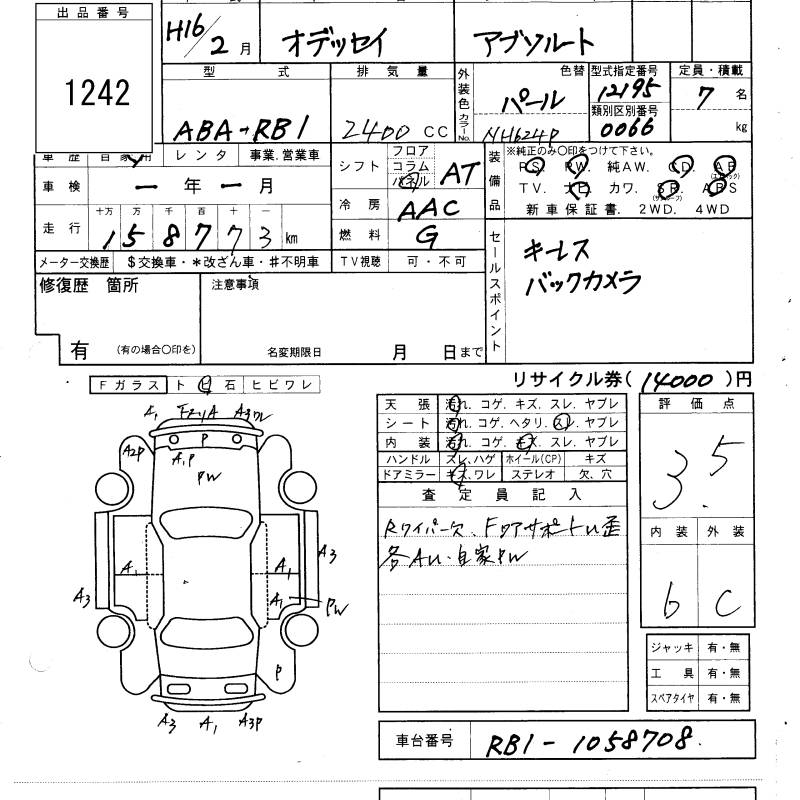 出品番号
1242
H16/2月 オデッセイ アブソルート
型式 ABA-RB1
排気量 2400 CC
外装色 カラーNo.
色替 パール
NH624P
型式指定番号
12195
類別区別番号
0066
定員・積載
7 名
kg
車歴 自家用 レンタ 事業.営業車
車検 一 年 一 月
走行 十万 万 千 百 十 一
158773 km
メーター交換歴 $交換車・*改ざん車・#不明車
シフト フロア コラム パネル AT
冷房 AAC
燃料 G
TV視聴 可・不可
装備品
※純正のみ〇印をつけて下さい。
P.S. P.W. 純AW. CD. AB
(エアバック)
T.V. ナビ カワ. SR. ABS
(サンルーフ)
新車保証書. 2WD. 4WD
セールスポイント
キーレス
バックカメラ
修復歴 箇所
有 (有の場合〇印を)
注意事項
名変期限日 月 日まで
リサイクル券(14000)円
Fガラス ト ビ 石 ヒビワレ
天張 汚れ. コゲ. キズ. スレ. ヤブレ
シート 汚れ. コゲ. ヘタリ. スレ. ヤブレ
内装 汚れ. コゲ. キズ. スレ. ヤブレ
ハンドル スレ.ハゲ ホイール(CP) キズ
ドアミラー キズ.ワレ ステレオ 欠、穴
査定員記入
Rワイパー欠、FコアサポートU歪
各AU・自家PW
評価点
3.5
内装 外装
6 C
ジャッキ 有・無
工具 有・無
スペアタイヤ 有・無
車台番号 RB1-1058708.
A1 A3ワレ
P
A2P
A1P
PW
A3
A1
A1
A3
A1
PW
P
A3
A1
A3P